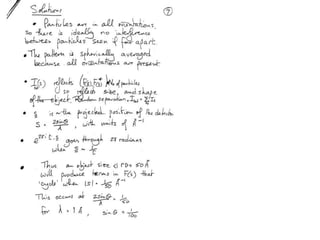 Solutions
• Particles are in all orientations.
So there is ideally no interference
between particles seen if far apart.
• The pattern is spherically averaged
because all orientations are present
• I(s) reflects
so reflects size, and shape
of the object. Random separation
• s is the projected position of the detector
S = 2sinθ/λ, with units of Å⁻¹
• goes through 2π radians
when
• Thus an object size
will produce terms in F(s) that
'cycle' when |S| = 1/50 Å⁻¹
This occurs at 2sinθ/λ = 1/50
for λ = 1Å, sinθ = 1/100